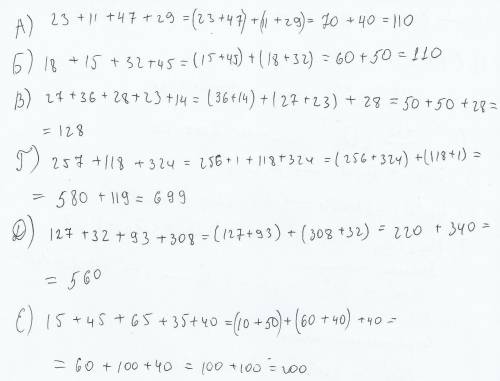 А) 23 + 11 + 47 + 29 = (23 + 47) + (11 + 29) = 70 + 40 = 110
Б) 18 + 15 + 32 + 45 = (15 + 45) + (18 + 32) = 60 + 50 = 110
В) 27 + 36 + 28 + 23 + 14 = (36 + 14) + (27 + 23) + 28 = 50 + 50 + 28 =
= 128
Г) 257 + 118 + 324 = 256 + 1 + 118 + 324 = (256 + 324) + (118 + 1) =
= 580 + 119 = 699
Д) 127 + 32 + 93 + 308 = (127 + 93) + (308 + 32) = 220 + 340 =
= 560
Е) 15 + 45 + 65 + 35 + 40 = (10 + 50) + (60 + 40) + 40 =
= 60 + 100 + 40 = 100 + 100 = 200